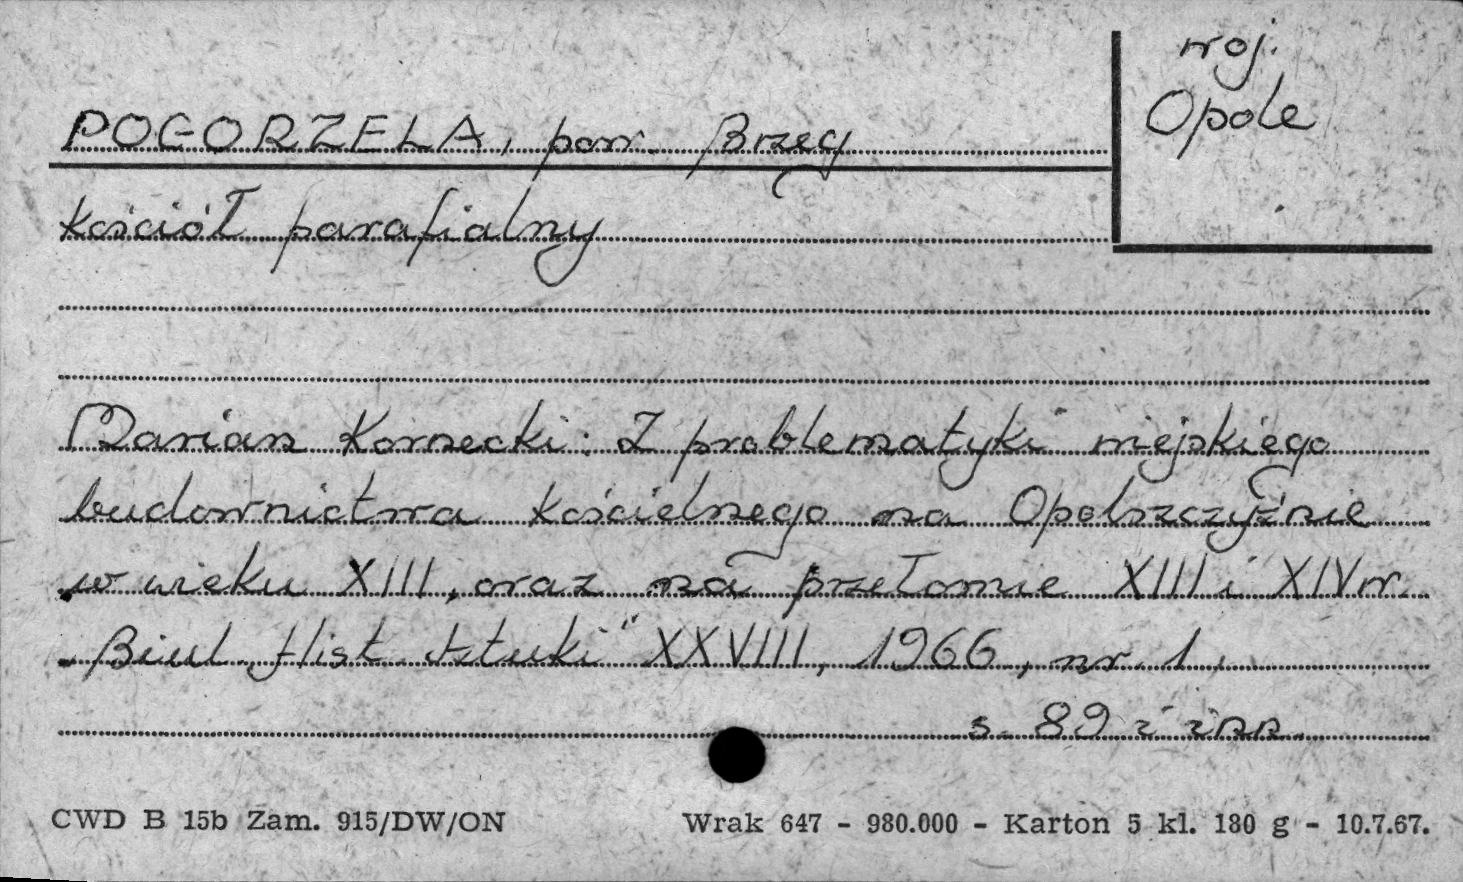 woj.
Opole
POGORZELA, pow. Brzeg
kościół parafialny
Marian Kornecki: Z problematyki miejskiego
budownictwa kościelnego na Opolszczyźnie
w wieku XIII, oraz na przełomie XIII i XIV w.
„Biul. Hist. Sztuki" XXVIII, 1966, nr 1,
s. 89 i inn.
CWD B 15b Zam. 915/DW/ON
Wrak 647 - 980.000 - Karton 5 kl. 180 g - 10.7.67.